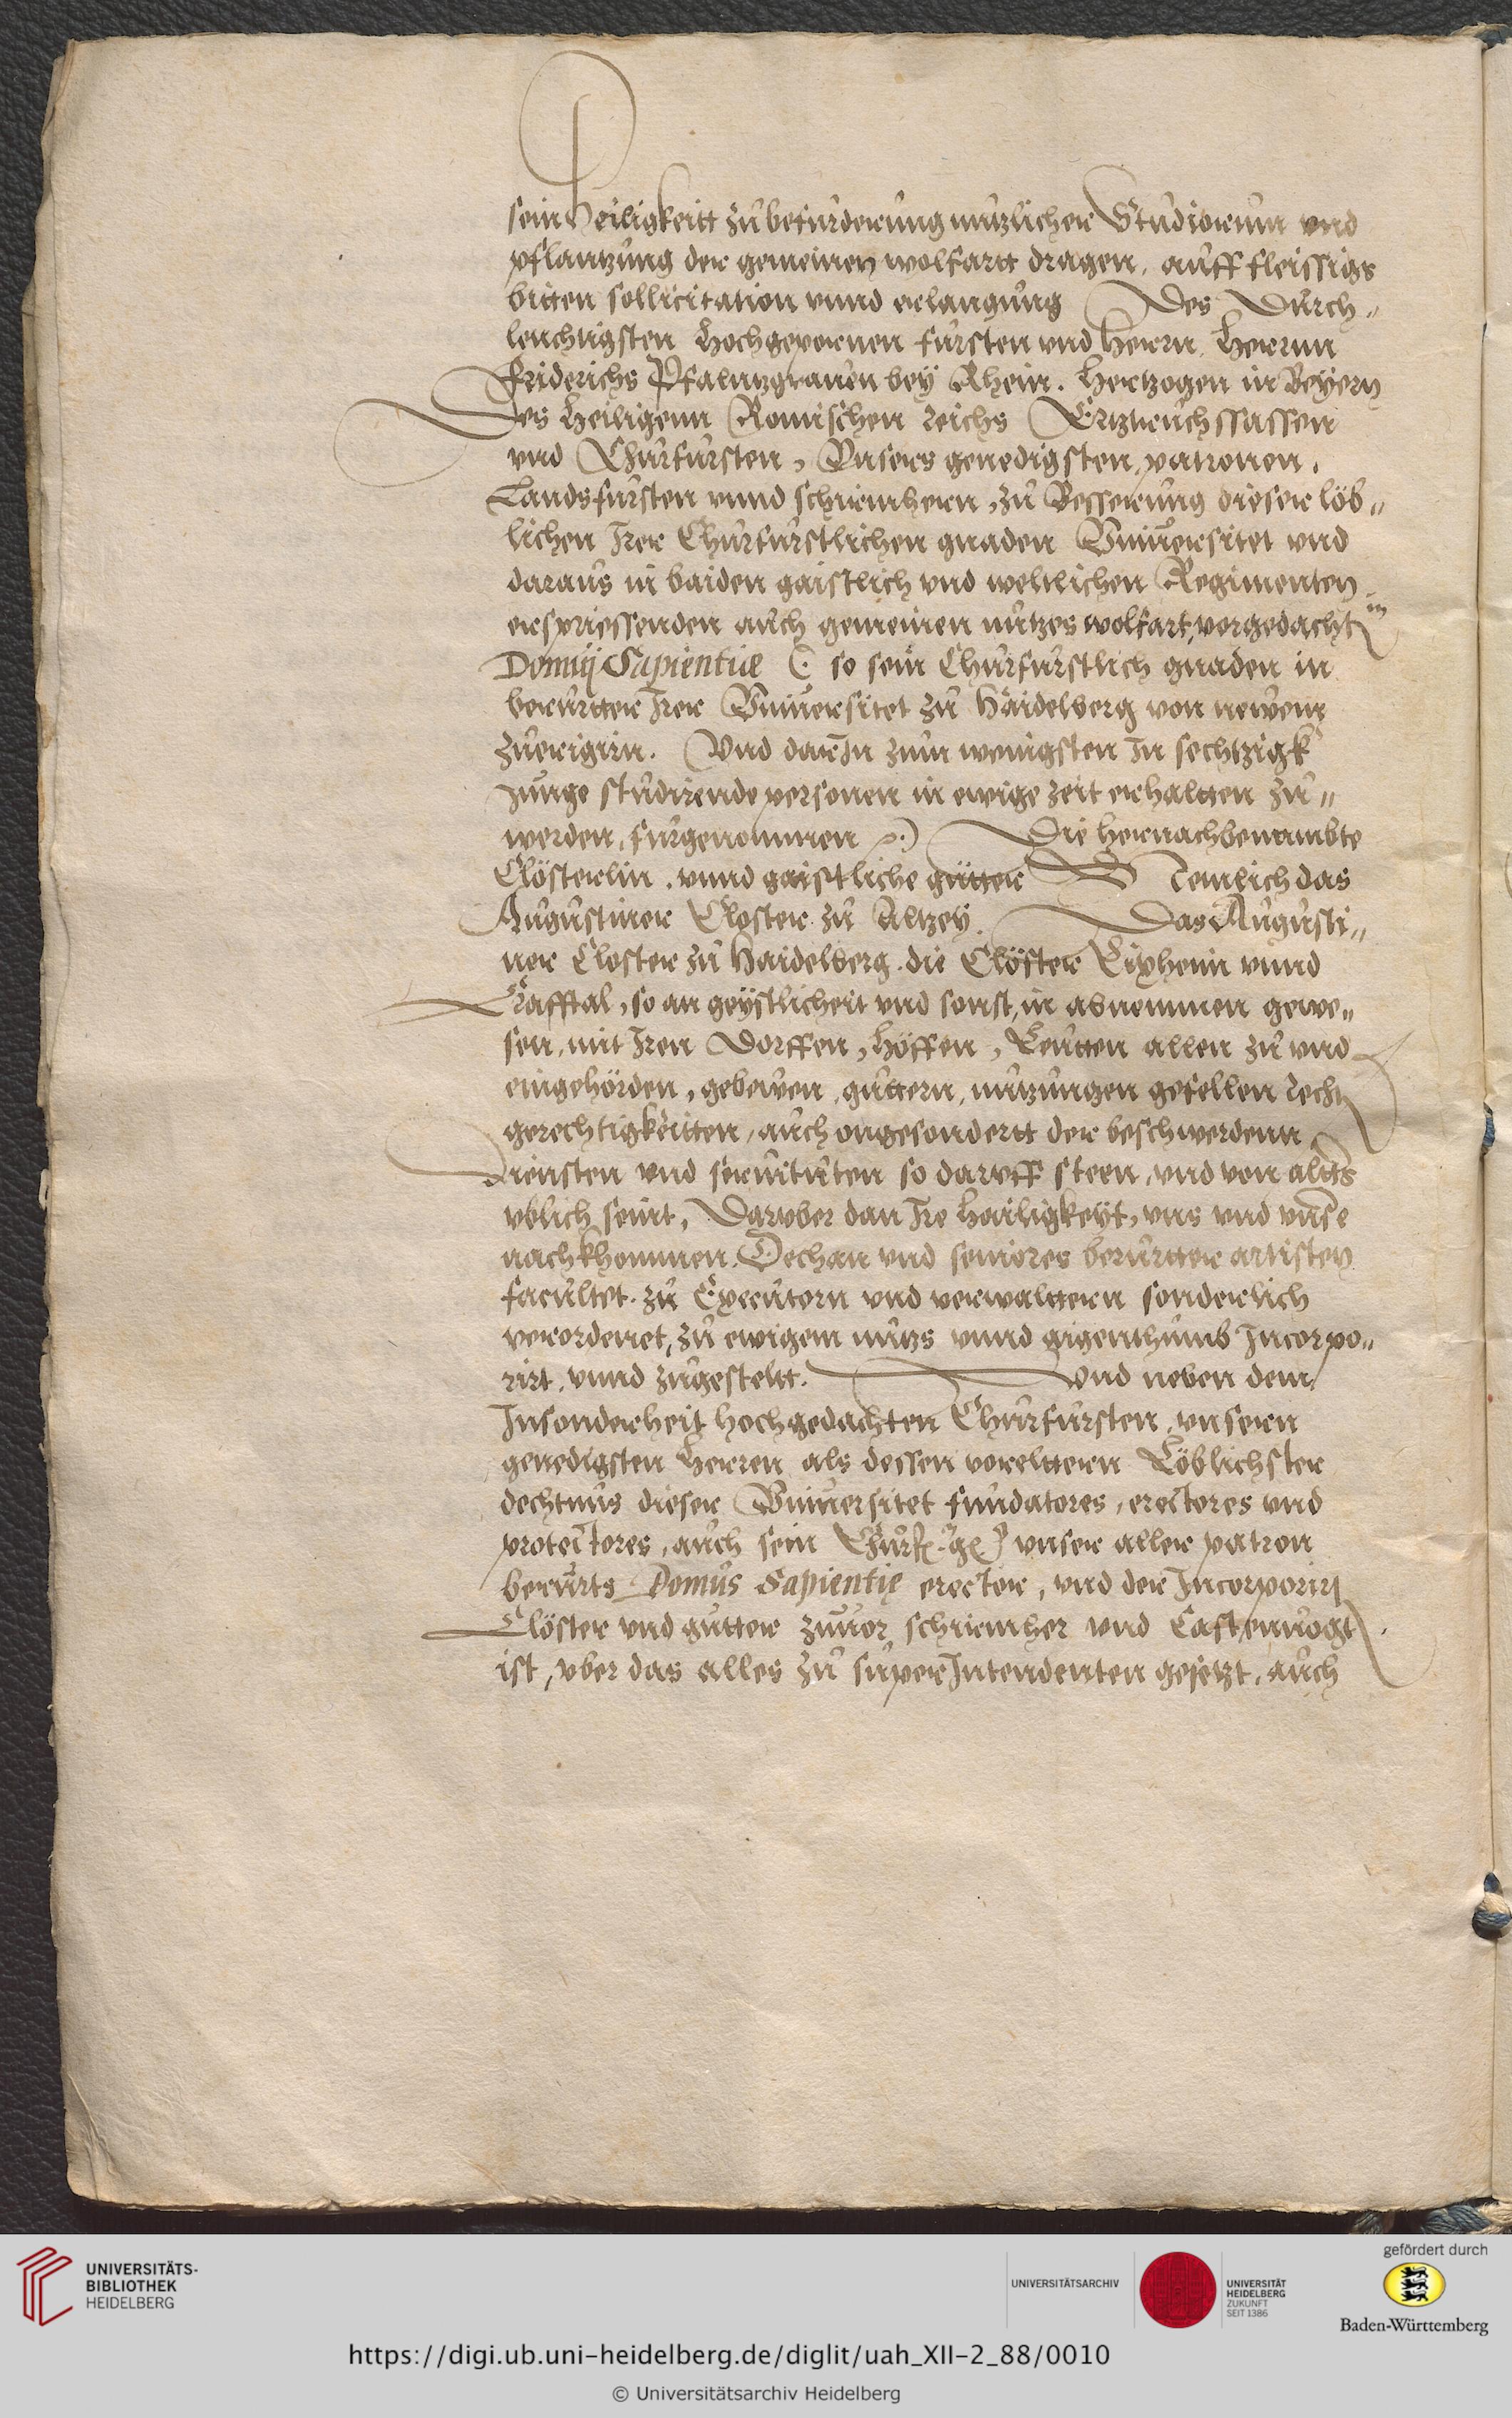 sein Heiligkeitt zu befurderung nutzlicher Studiorum vnd
pflantzung der gemeinen wolfartt dragen, auff fleissigs
bitten sollicitation vnnd erlangung Des Durch„
leuchtigsten Hochgepornen fursten vnd Herrn, Herrnn
Friderichs Pfaltzgrauen bey Rhein. Hertzogen in Beyern
Des Heiligenn Romischen reichs Ertztruchssassen
vnd Churfursten, Vnsers genedigsten patronen,
Landsfursten vnnd schirmhern, zu Besserung dieser löb„
lichen Irer Churfurstlichen gnaden Vniuersitet vnd
daraus in baiden gaistlich vnd weltlichen Regimenten
erspriessenden auch gemeinen nutzes wolfart, vorgedacht
Domij Sapientiæ (: so sein Churfurstlich gnaden in
berurtter Irer Vniuersitet zu Haidelberg von newem
zuerigirn. Vnd darIn zum wenigsten In sechtzigk
Junge studirende personen in ewige zeit erhaltten zu„
werden, furgenommen :) Die hernachbenambte
Clösterlin, vnnd gaistliche gütter Nemlich das
Augustiner Closter zu Altzey. Das Augusti„
ner Closter zu Haidelberg. die Clöster Lixheim vnnd
Grafftal, so an geystlicheit vnd sonst, in abnemmen gewe„
sen, mit Iren Dorffen, Höffen, Leutten allen zu vnd
eingehörden, gebewen, guttern, nutzungen gefellen recht
gerechtigkeitten, auch ongesondertt der beschwerdenn
diensten vnd seruituten so daruff steen, vnd von alltts
vblich seint, Daruber dan Ire Hailigkeyt, vns vnd vnse
nachkhommen. Dechan vnd seniores berurtter artisten
facultet. zu Executorn vnd verwalttern sonderlich
verordenet, zu ewigem nutzs vnnd aigenthumb Incorpo„
rirt, vnnd zugestellt. Vnd neben dem
Insonderheit hochgedachten Churfursten, vnsern
genedigsten Herren als dessen voreltern Löblichster
dechtnus dieser Vniuersitet fundatores, erectores vnd
protectores, auch sein Churf. g. vnser aller patron
berurts Domus Sapientię erector, vnd der Incorporirt
Clöster vnd gutter zuuor schirmher vnd Castenuogt
ist, vber das alles zu superIntendenten gesetzt, auch
UNIVERSITÄTS-
BIBLIOTHEK
HEIDELBERG
UNIVERSITÄTSARCHIV
UNIVERSITÄT
HEIDELBERG
ZUKUNFT
SEIT 1386
gefördert durch
Baden-Württemberg
https://digi.ub.uni-heidelberg.de/diglit/uah_XII-2_88/0010
© Universitätsarchiv Heidelberg